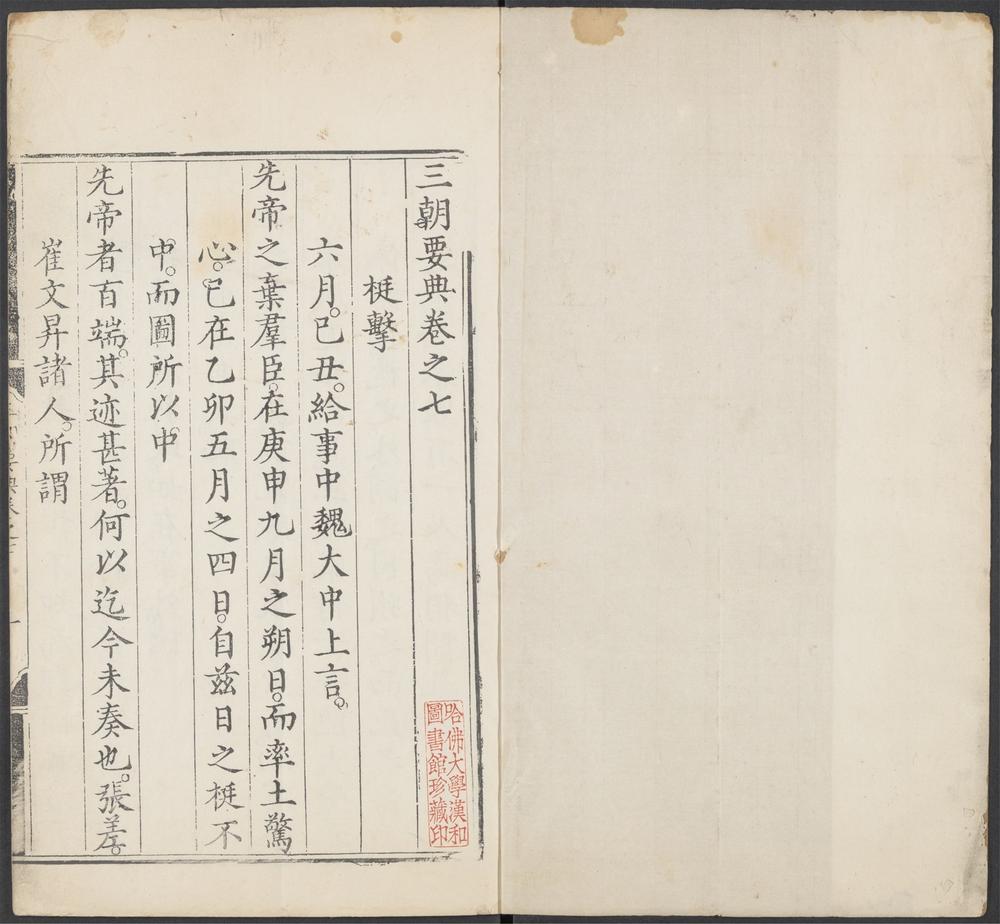 三朝要典卷之七
梃擊
六月。己丑。給事中魏大中上言。
先帝之棄羣臣。在庚申九月之朔日。而率土驚
心。已在乙卯五月之四日。自茲日之梃不
中。而圖所以中
先帝者百端。其迹甚著。何以迄今未奏也。張差。
崔文昇諸人。所謂
哈佛大學漢和
圖書館珍藏印